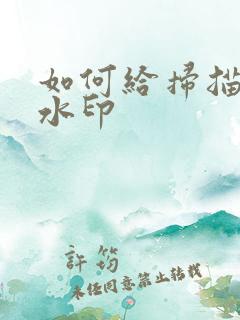 如何給掃描
水印
許筠
未經同意禁止轉載